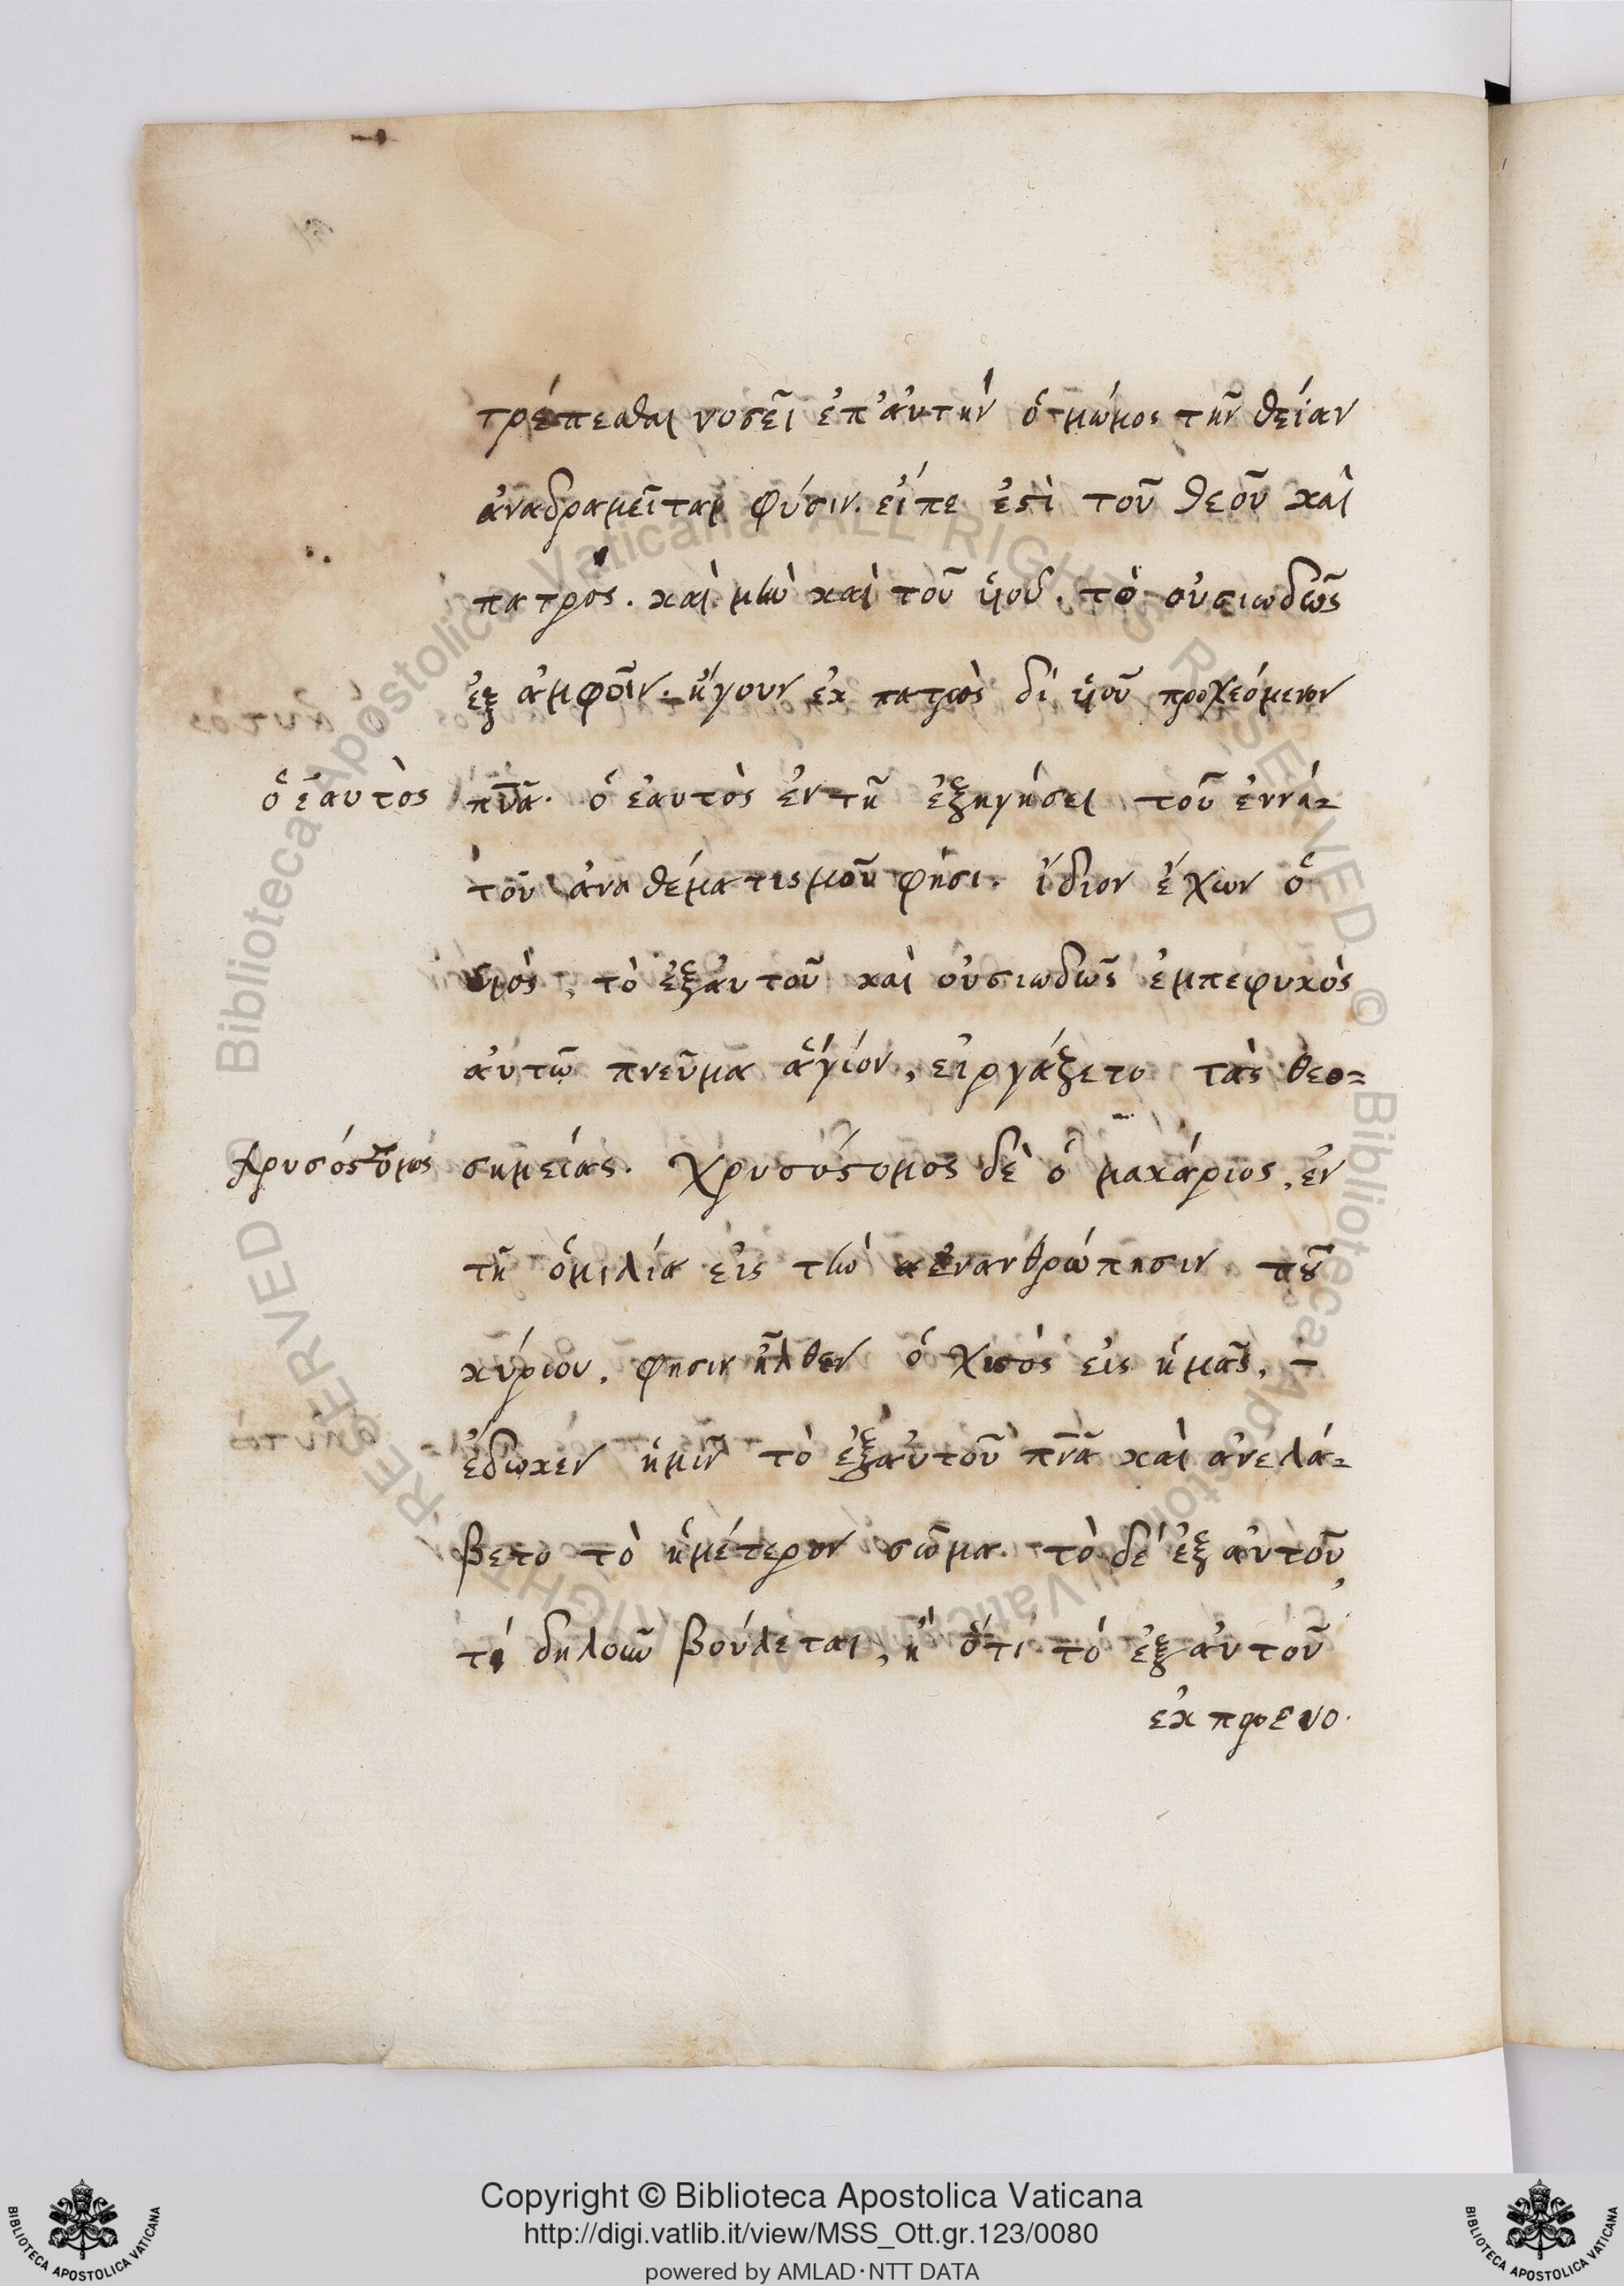 τρέπεσθαι νοσεῖ ἐπ' ἀυτὴν ὁ μώμος τὴν θείαν
ἀναδραμεῖται φύσιν. εἴπερ ἐστὶ τοῦ θεοῦ καὶ
πατρὸς. καὶ μὴν καὶ τοῦ ὑιοῦ. τὸ οὐσιωδῶς
ἐξ ἀμφοῖν. ἤγουν ἐκ πατρὸς δι ὑιοῦ προχεόμενον
ὁ ἑαυτὸς
πνᾶ. ὁ ἑαυτὸς ἐν τῆ ἐξηγήσει τοῦ ἐννά=
του ἀναθέματισμοῦ φησι. ἴδιον ἔχων ὁ
ὑιὸς, τὸ ἐξ ἀυτοῦ καὶ οὐσιωδῶς ἐμπεφυκὸς
ἀυτῶ πνεῦμα ἅγιον, εἰργάζετο τὰς θεο=
Χρυσόστομος
σημείας. Χρυσόστομος δὲ ὁ μακάριος, ἐν
τῆ ὁμιλία εἰς τὴν ἐνανθρώπησιν τοῦ
κύριου. φησιν ἦλθεν ὁ Χισὸς εἰς ἡμᾶς,
ἔδωκεν ἡμῖν τὸ ἐξ ἀυτοῦ πνᾶ καὶ ἀνελά=
βετο τὸ ἡμέτερον σῶμα. τὸ δέ ἐξ ἀυτοῦ,
τί δηλοῦν βούλεται, ἢ ὅτι τὸ ἐξ ἀυτοῦ
ἐκπορενο.
Copyright © Biblioteca Apostolica Vaticana
http://digi.vatlib.it/view/MSS_Ott.gr.123/0080
powered by AMLAD·NTT DATA